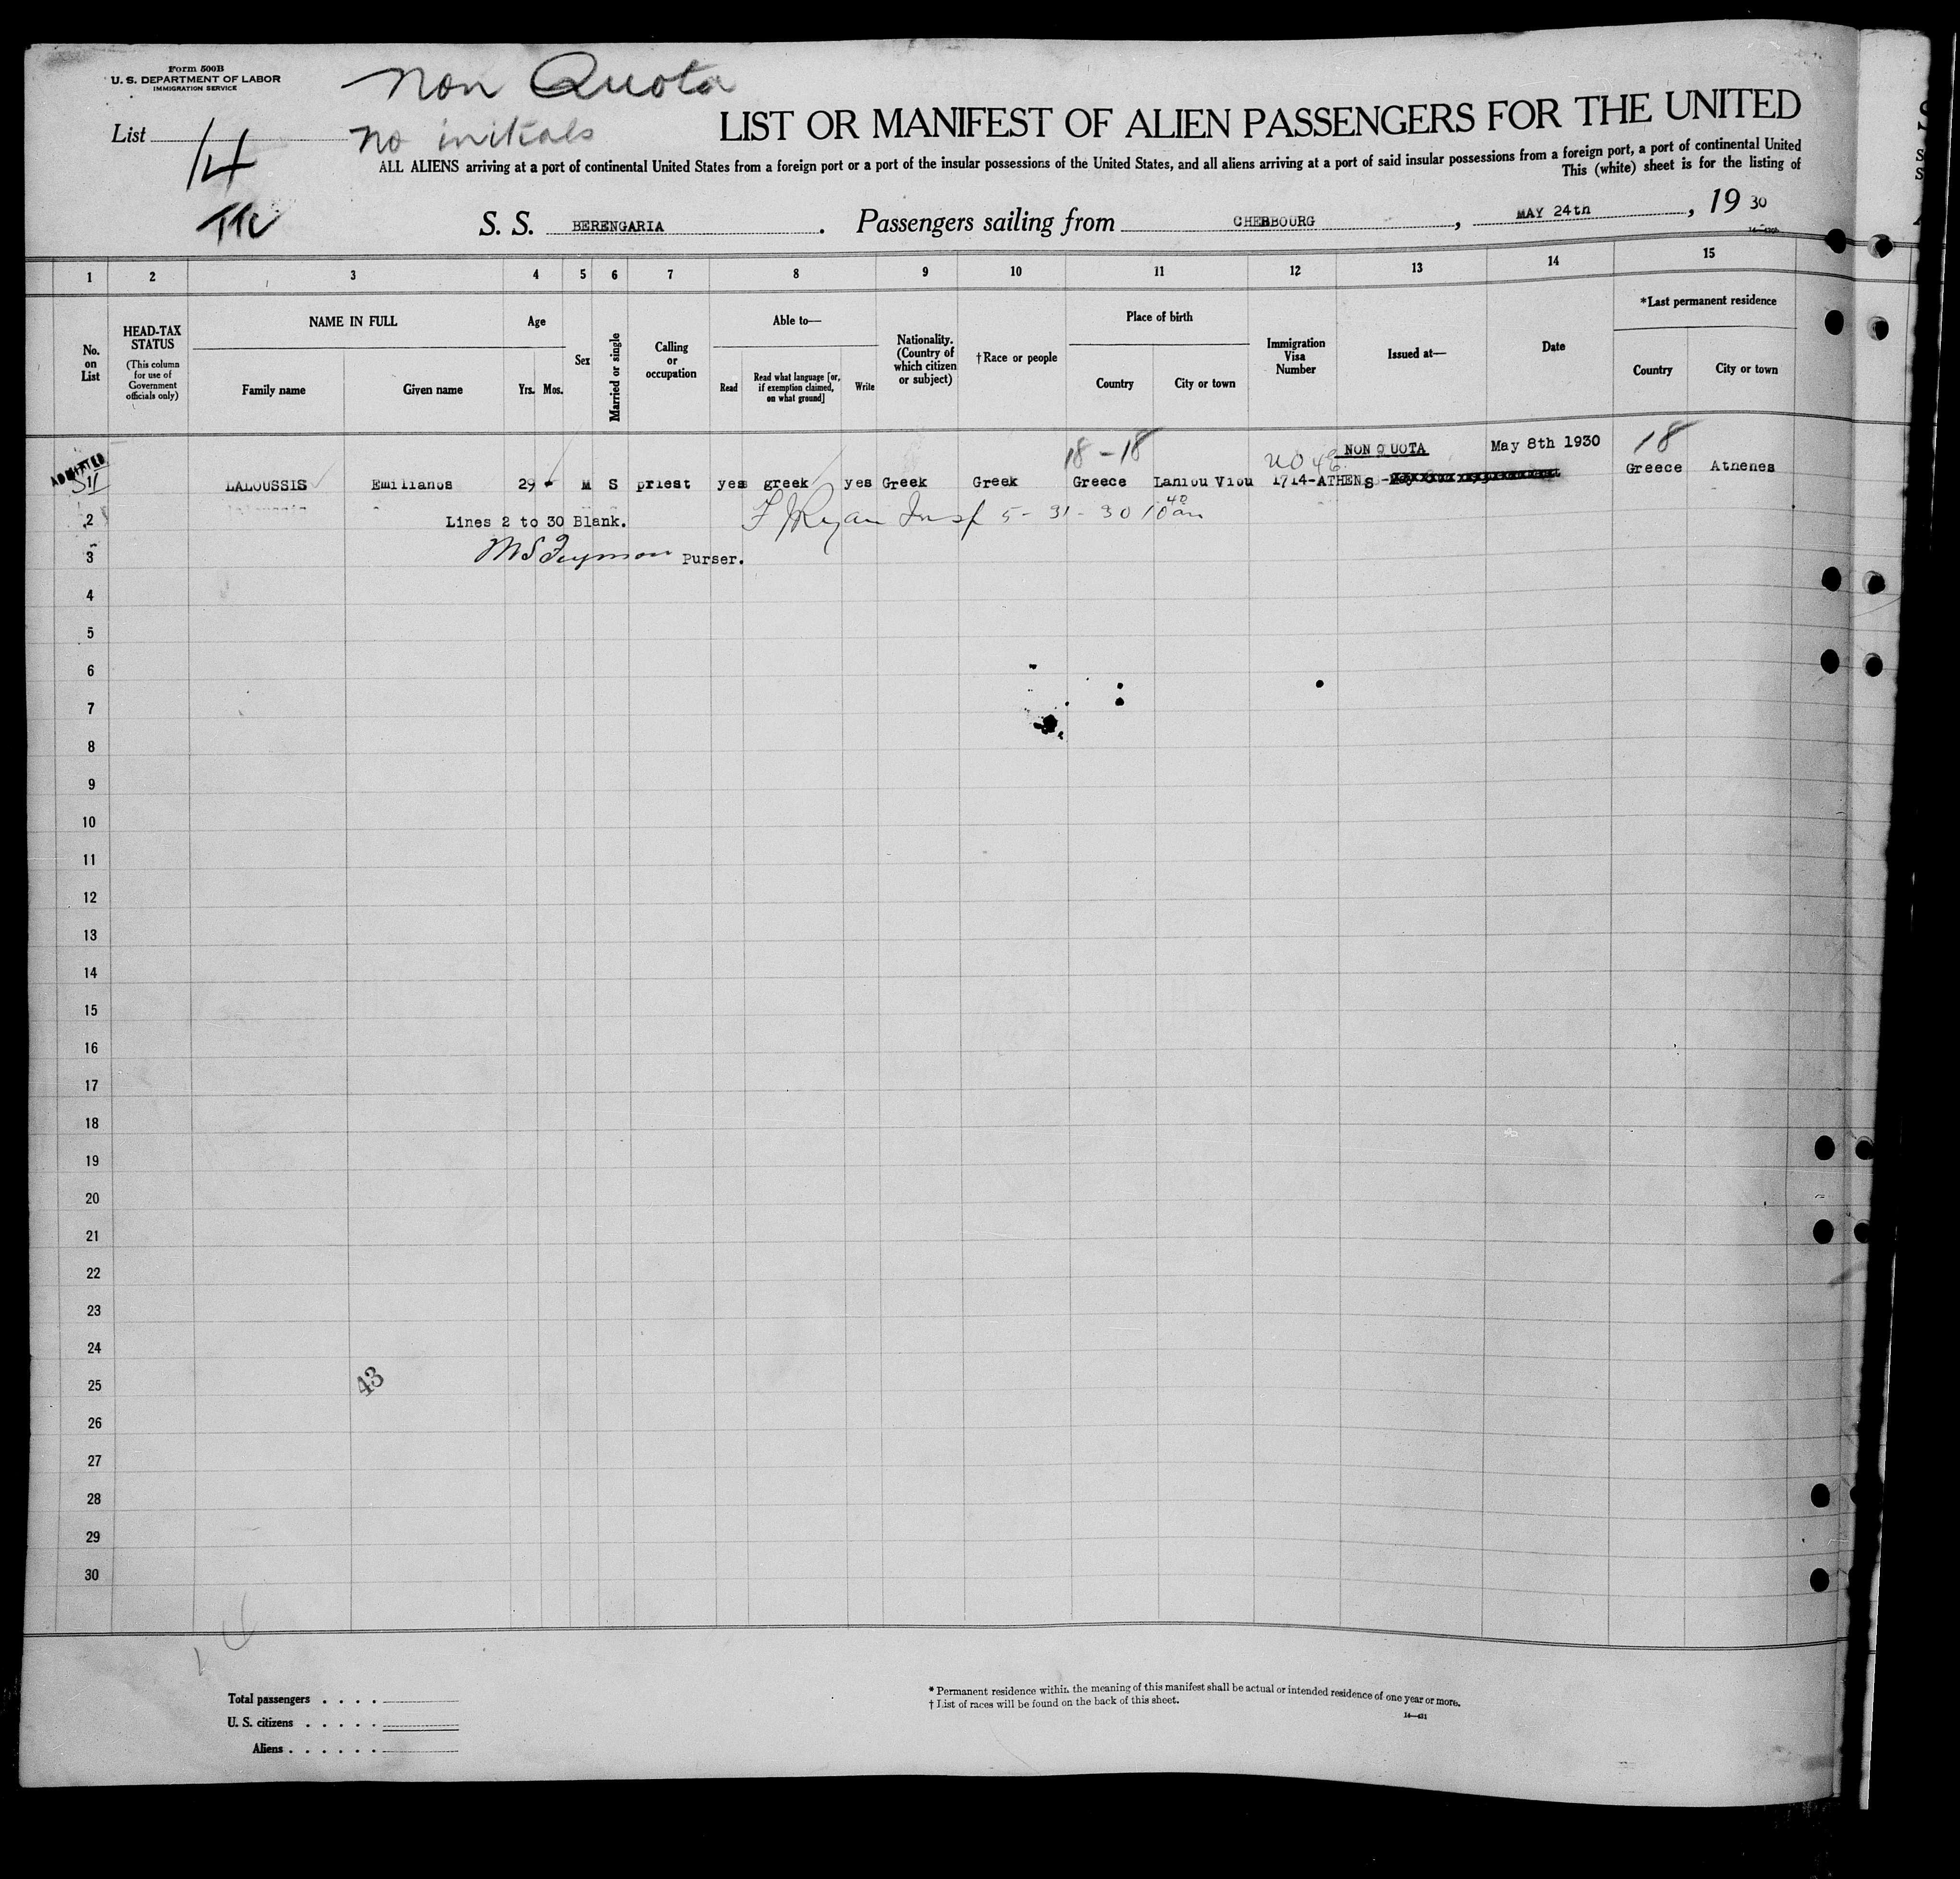 Form 500B
U. S. DEPARTMENT OF LABOR
IMMIGRATION SERVICE
Non Quota
List 14
no initials
LIST OR MANIFEST OF ALIEN PASSENGERS FOR THE UNITED
ALL ALIENS arriving at a port of continental United States from a foreign port or a port of the insular possessions of the United States, and all aliens arriving at a port of said insular possessions from a foreign port, a port of continental United
This (white) sheet is for the listing of
S. S. BERENGARIA. Passengers sailing from CHERBOURG, MAY 24th, 19 30
1 2 3 4 5 6 7 8 9 10 11 12 13 14 15
No. on List
HEAD-TAX STATUS
(This column for use of Government officials only)
NAME IN FULL
Family name Given name
Age
Yrs. Mos.
Sex
Married or single
Calling or occupation
Able to—
Read
Read what language [or, if exemption claimed, on what ground]
Write
Nationality. (Country of which citizen or subject)
†Race or people
Place of birth
Country City or town
Immigration Visa Number
Issued at—
Date
*Last permanent residence
Country City or town
18 - 18 NON QUOTA May 8th 1930 18
ADMITTED
LALOUSSIS Emilianos 29 M S priest yes greek yes Greek Greek Greece Laniou Viou 1714-ATHENS Greece Athenes
2 Lines 2 to 30 Blank. F J Ryan Insp 5-31-30 10 40 am
3 Purser.
4
5
6
7
8
9
10
11
12
13
14
15
16
17
18
19
20
21
22
23
24
25
43
26
27
28
29
30
Total passengers . . . .
U. S. citizens . . . . .
Aliens . . . . . .
* Permanent residence within the meaning of this manifest shall be actual or intended residence of one year or more.
† List of races will be found on the back of this sheet.